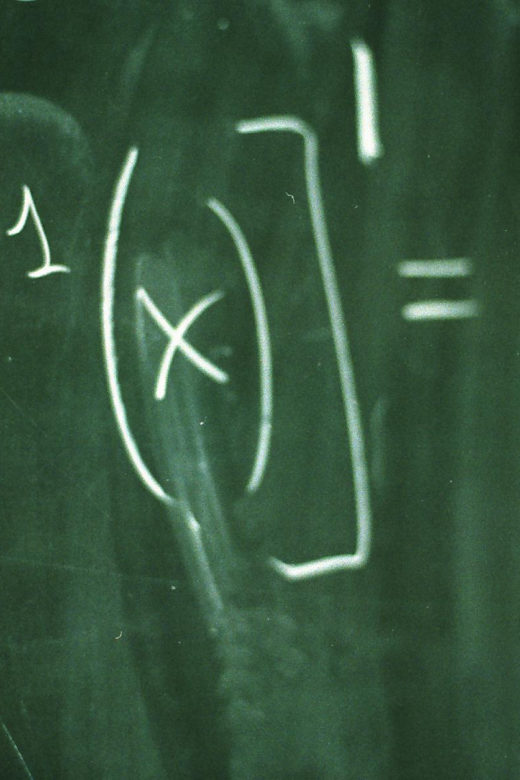 1(x)]' =